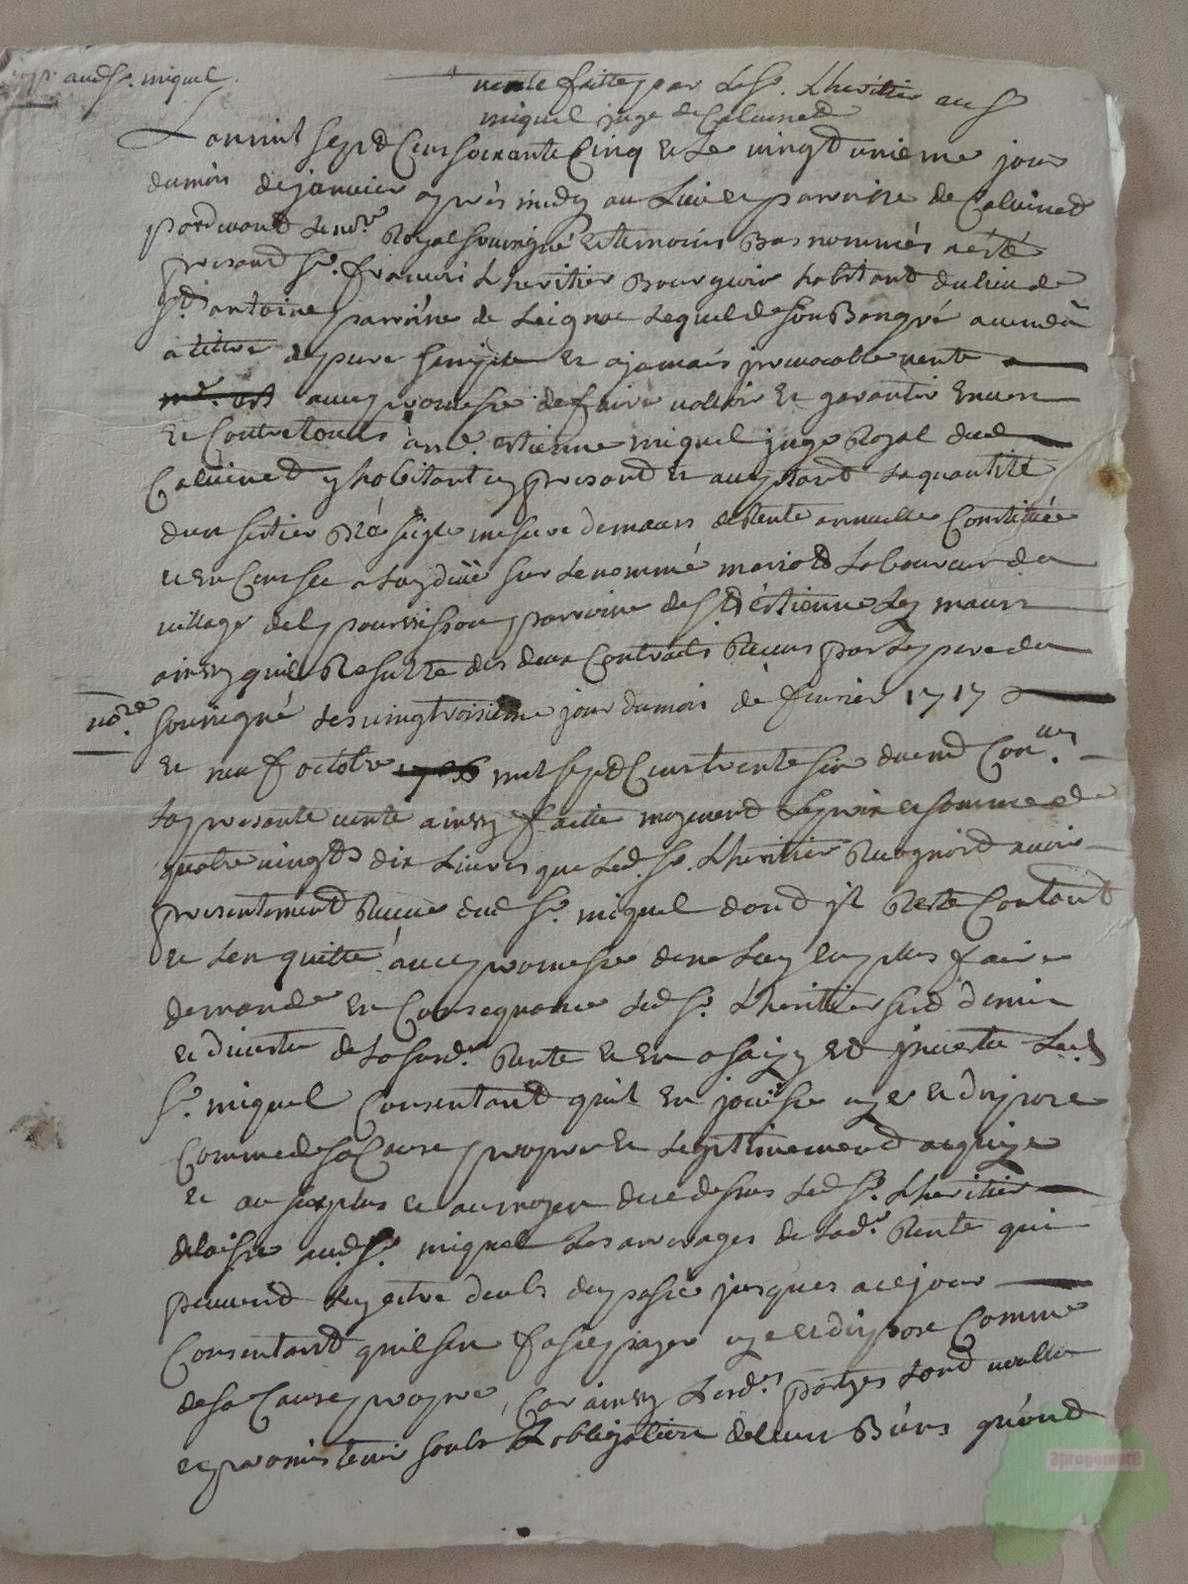 aud Sr. miquel.
vente faitte par le Sr. Lheritier au Sr
miquel juge de Calvinet
Lan mil sept Cens soixante Cinq et Le vingt unieme jour
du mois de janvier apres midy au Lieu et parroisse de Calvinet
pardevant le nore. Royal soussigné et temoins Bas nommés a été
presant Sr. francois Lheritier Bourgois habitant du lieu de
St. antoine parroisse de Leignac Lequel de son Bon gré a vendu
a titre de pure simple et a jamais jrrevocable vente
avec promesse de faire valloir et garantir Envers
et Contre touts a me. estienne miquel juge Royal dud
Calvinet y habitant jcy presant et acceptant La quantité
dun setier Blé seigle mesure de maurs de Rente annuelle Constituée
et En Censee a Luy düe sur le nommé mariot Laboureur du
village del parroisse de St. étienne Lez maurs
ainsy quil Resulte des deux Contrats Recus par le pere du
nore. soussigné les vingt troisieme jour du mois de fevrier 1717
et neuf octobre mil sept Cens trente six duemt Conlles.
La presante vente ainsy faitte moyenent Le prix et somme de
quatre vingts dix Livres que Led. Sr. Lheritier Recognoit avoir
presentement Receue dud Sr. miquel dont jl Reste Contant
et Len quitte avec promesse de ne Luy en plus faire
demande En Consequance Led Sr. Lheritier sest demis
et divestu de La susde. Rente et En a saizy et jnvestu Led
Sr. miquel Consentant quil En jouisse uze et dispose
Comme de sa Cause propre et Legitimement acquize
et au surplus et au moyen de ce dessus Led Sr. Lheritier
delaisse aud. Sr. miquel Les arrerages de Lade. Rente qui
peuvent Luy estre deubs du passé jusques a ce jour
Consentant quil sen fasse payer uze et dispose Comme
de sa Cause propre, Car ainsy Lesdes. partyes Lont voullu
et promis tenir soubs Lobligation de leurs Biens quont